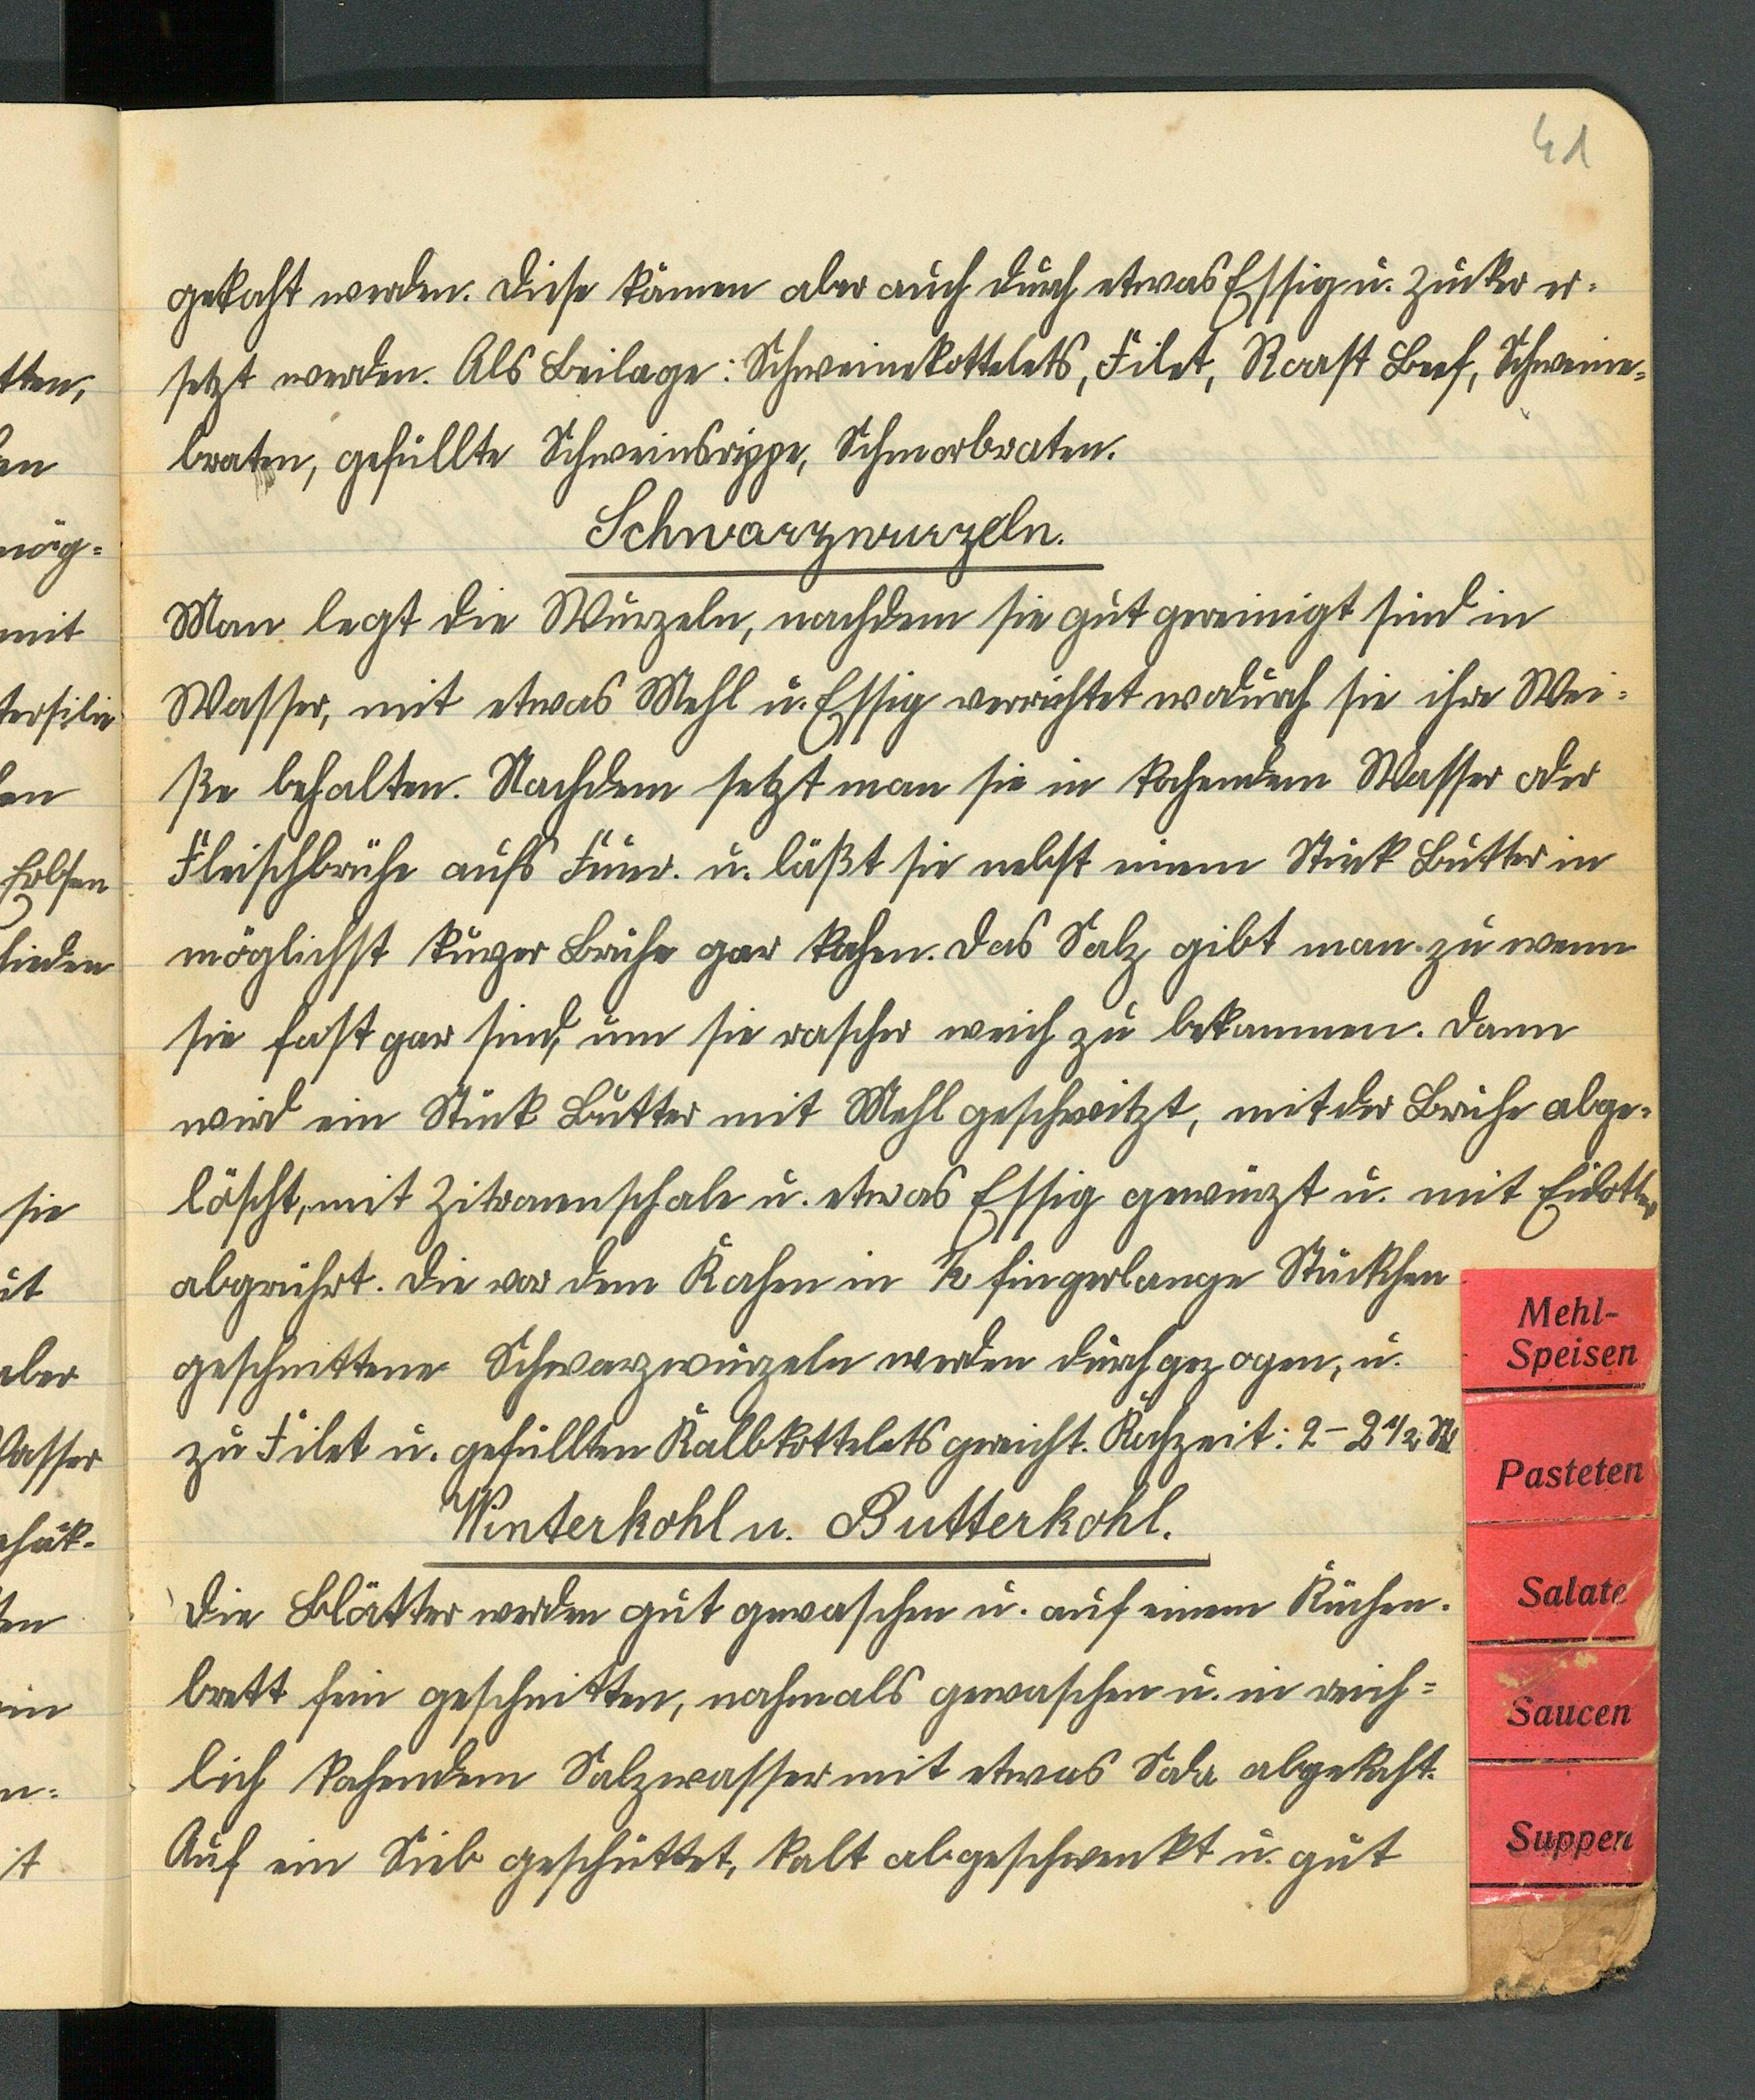 41
gekocht werden. Diese können aber auch durch etwas Essig u. Zucker er-
setzt werden. Als Beilage: Schweinekottelets, Filet, Roast Beef, Schweine-
braten, gefüllte Schweinsrippe, Schmorbraten.
Schwarzwurzeln.
Man legt die Wurzeln, nachdem sie gut gereinigt sind in
Wasser, mit etwas Mehl u. Essig verrichtet wodurch sie ihre Wei-
ße behalten. Nachdem setzt man sie in kochendem Wasser oder
Fleischbrühe aufs Feuer. u. läßt sie nebst einem Stück Butter in
möglichst kurzer Brühe gar kochen. Das Salz gibt man zu wenn
sie fast gar sind, um sie rascher weich zu bekommen. Dann
wird ein Stück Butter mit Mehl geschwitzt, mit der Brühe abge-
löscht, mit Zitronenschale u. etwas Essig gewürzt u. mit Eidotter
abgerührt. Die vor dem Kochen in ½ fingerlange Stückchen
geschnittene Schwarzwurzeln werden durchgezogen, u.
zu Filet u. gefüllten Kalbkottelets gereicht. Kochzeit: 2-2 1/2 St.
Winterkohl u. Butterkohl.
Die Blätter werden gut gewaschen u. auf einem Küchen-
brett fein geschnitten, nochmals gewaschen u. in reich-
lich kochendem Salzwasser mit etwas Soda abgekocht.
Auf ein Sieb geschüttet, kalt abgeschwenkt u. gut
Mehl-
Speisen
Pasteten
Salate
Saucen
Suppen
tten,
en
mög-
mit
tersilie
en
Erbsen
sieden
sie
ut
aber
Wasser
ten
ein
n-
it